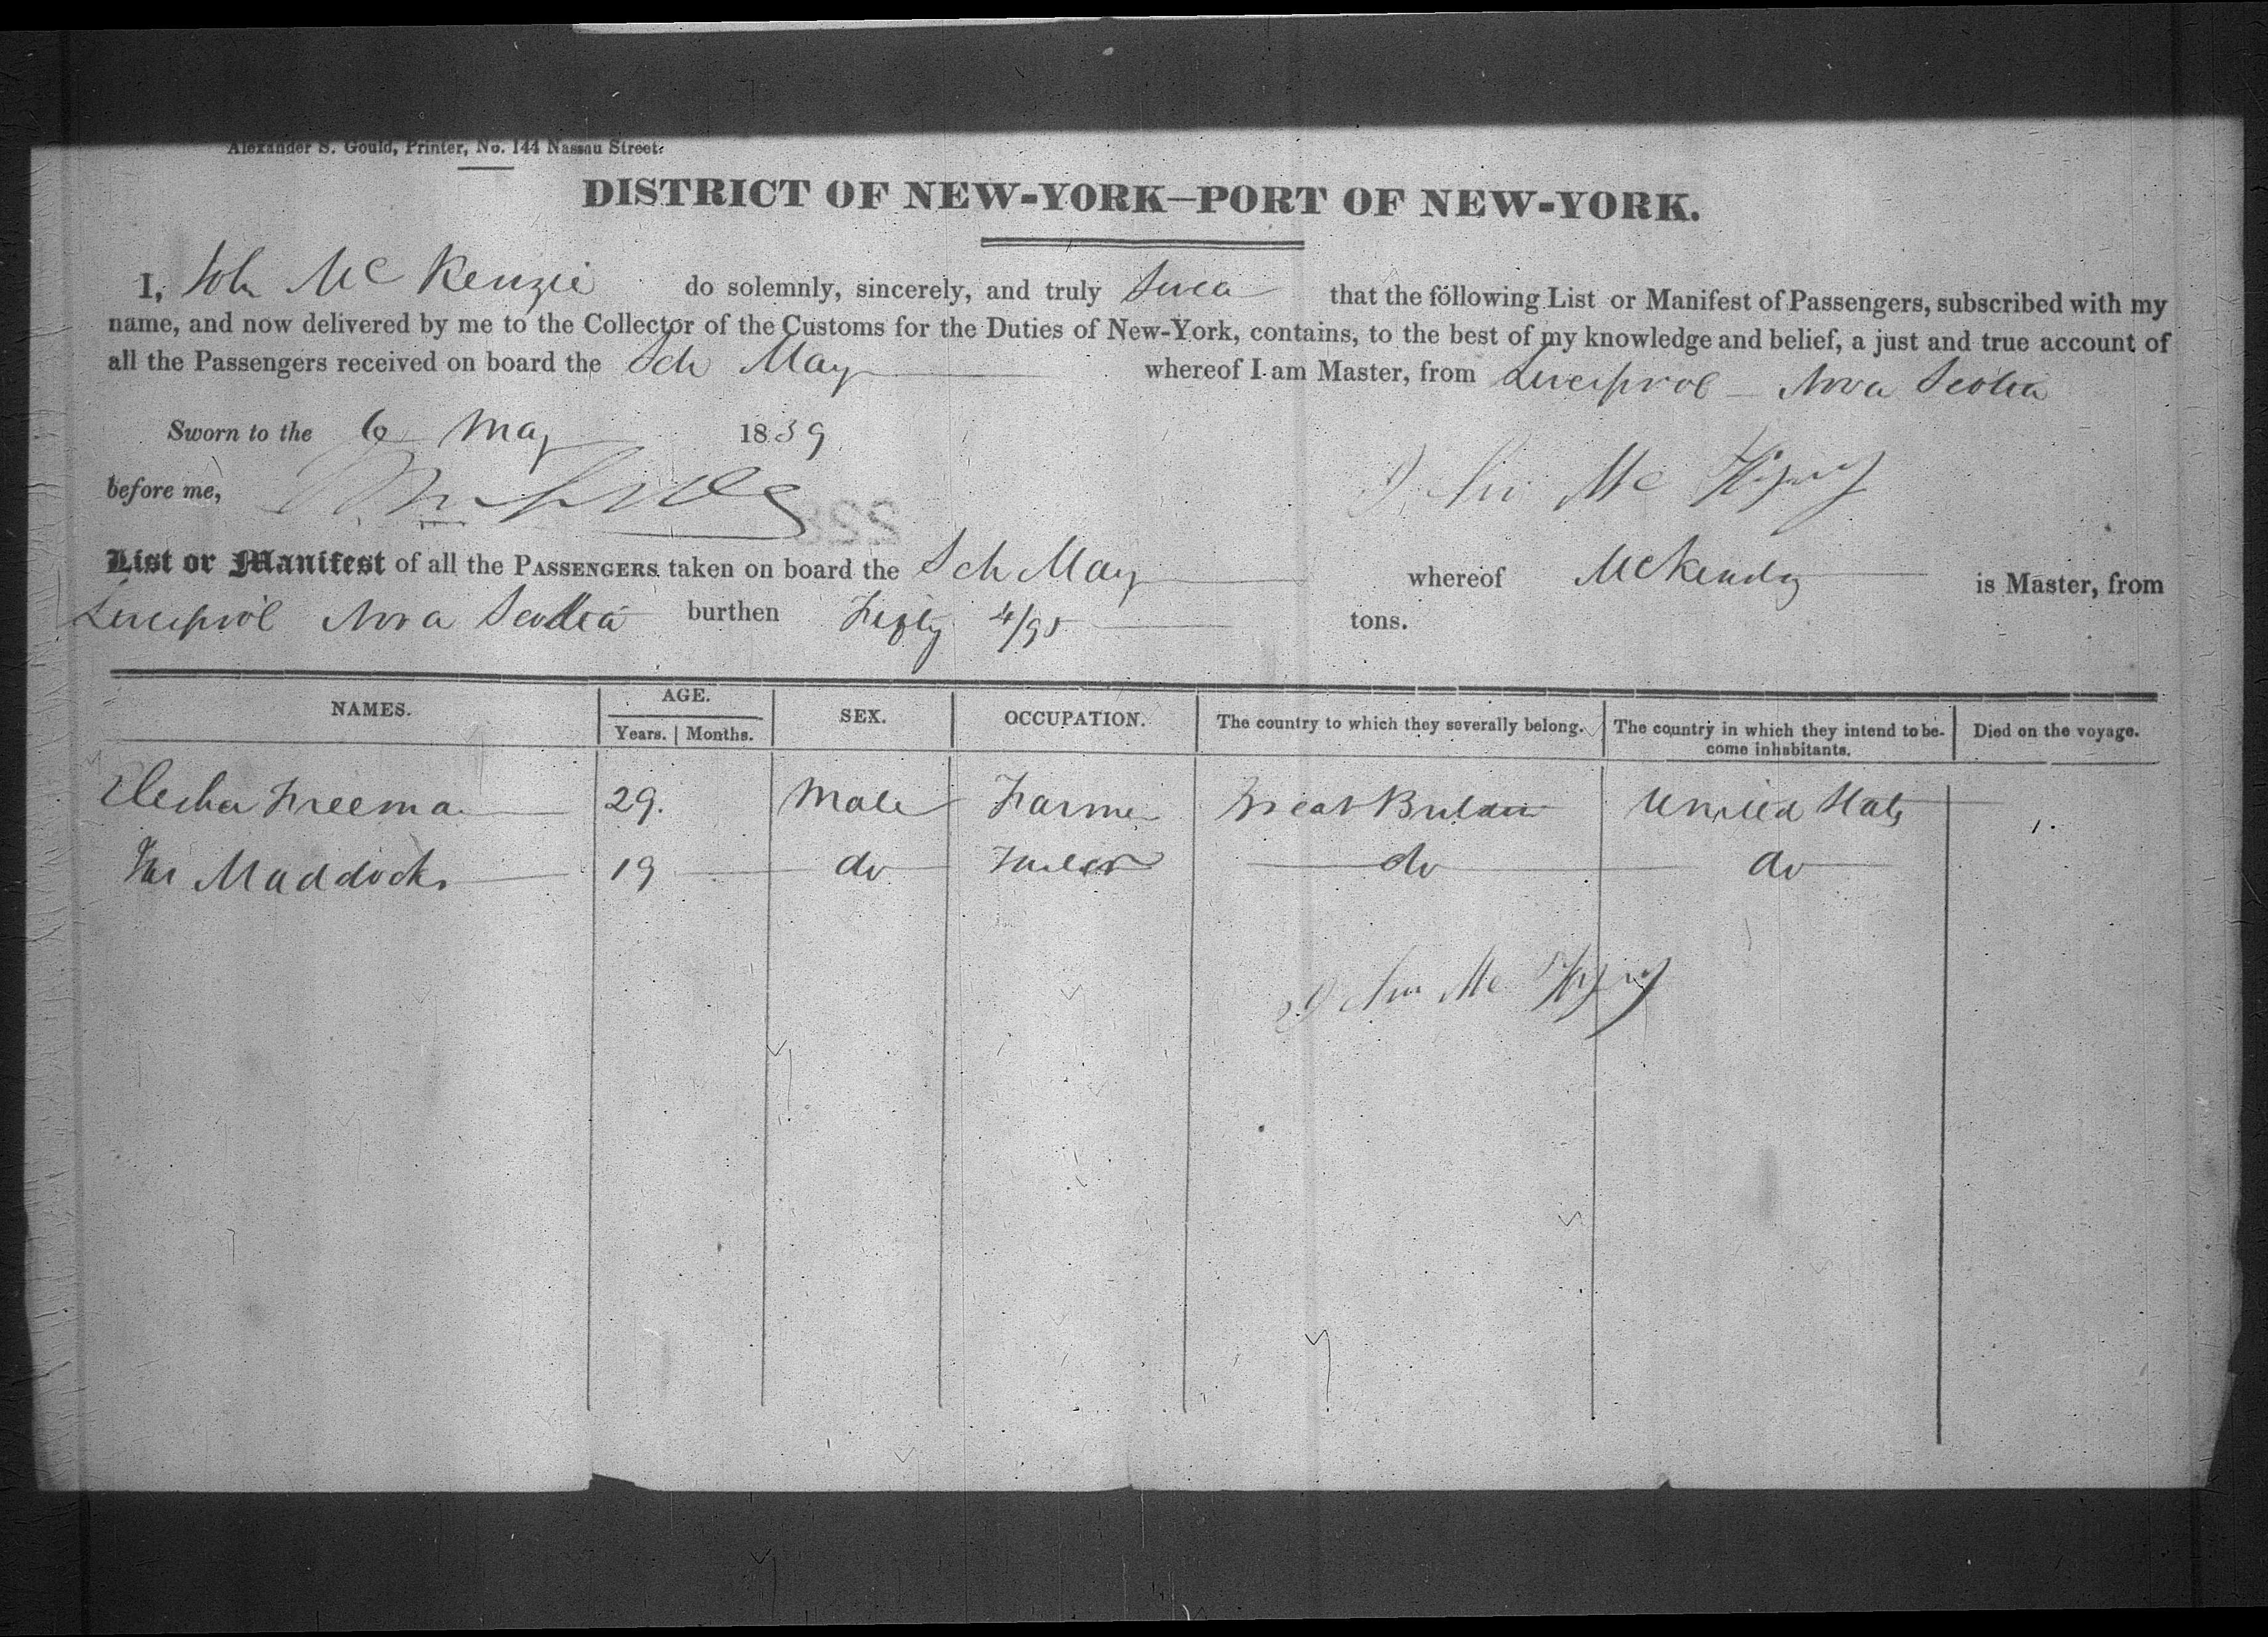 Alexander S. Gould, Printer, No. 144 Nassau Street.
DISTRICT OF NEW-YORK—PORT OF NEW-YORK.
I, John McKenzie do solemnly, sincerely, and truly Swea that the following List or Manifest of Passengers, subscribed with my
name, and now delivered by me to the Collector of the Customs for the Duties of New-York, contains, to the best of my knowledge and belief, a just and true account of
all the Passengers received on board the Sch May whereof I am Master, from Liverpool - Nova Scotia
Sworn to the 6 May 1839
before me,
List or Manifest of all the PASSENGERS taken on board the Sch May whereof McKendy is Master, from
Liverpool Nova Scotia burthen Fifty 4/95 tons.
NAMES. AGE. SEX. OCCUPATION. The country to which they severally belong. The country in which they intend to be-
come inhabitants. Died on the voyage.
Years. Months.
Elesha Freeman 29. Male Farmer Great Britain United States
Maddocks 19 do do do